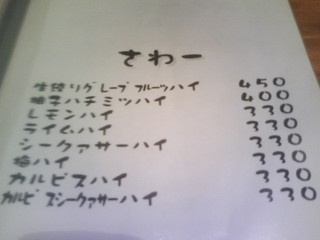 さわー
生搾りグレープフルーツハイ 450
柚子ハチミツハイ 400
レモンハイ 330
ライムハイ 330
シークァサーハイ 330
梅ハイ 330
カルピスハイ 330
カルピスシークァサーハイ 330